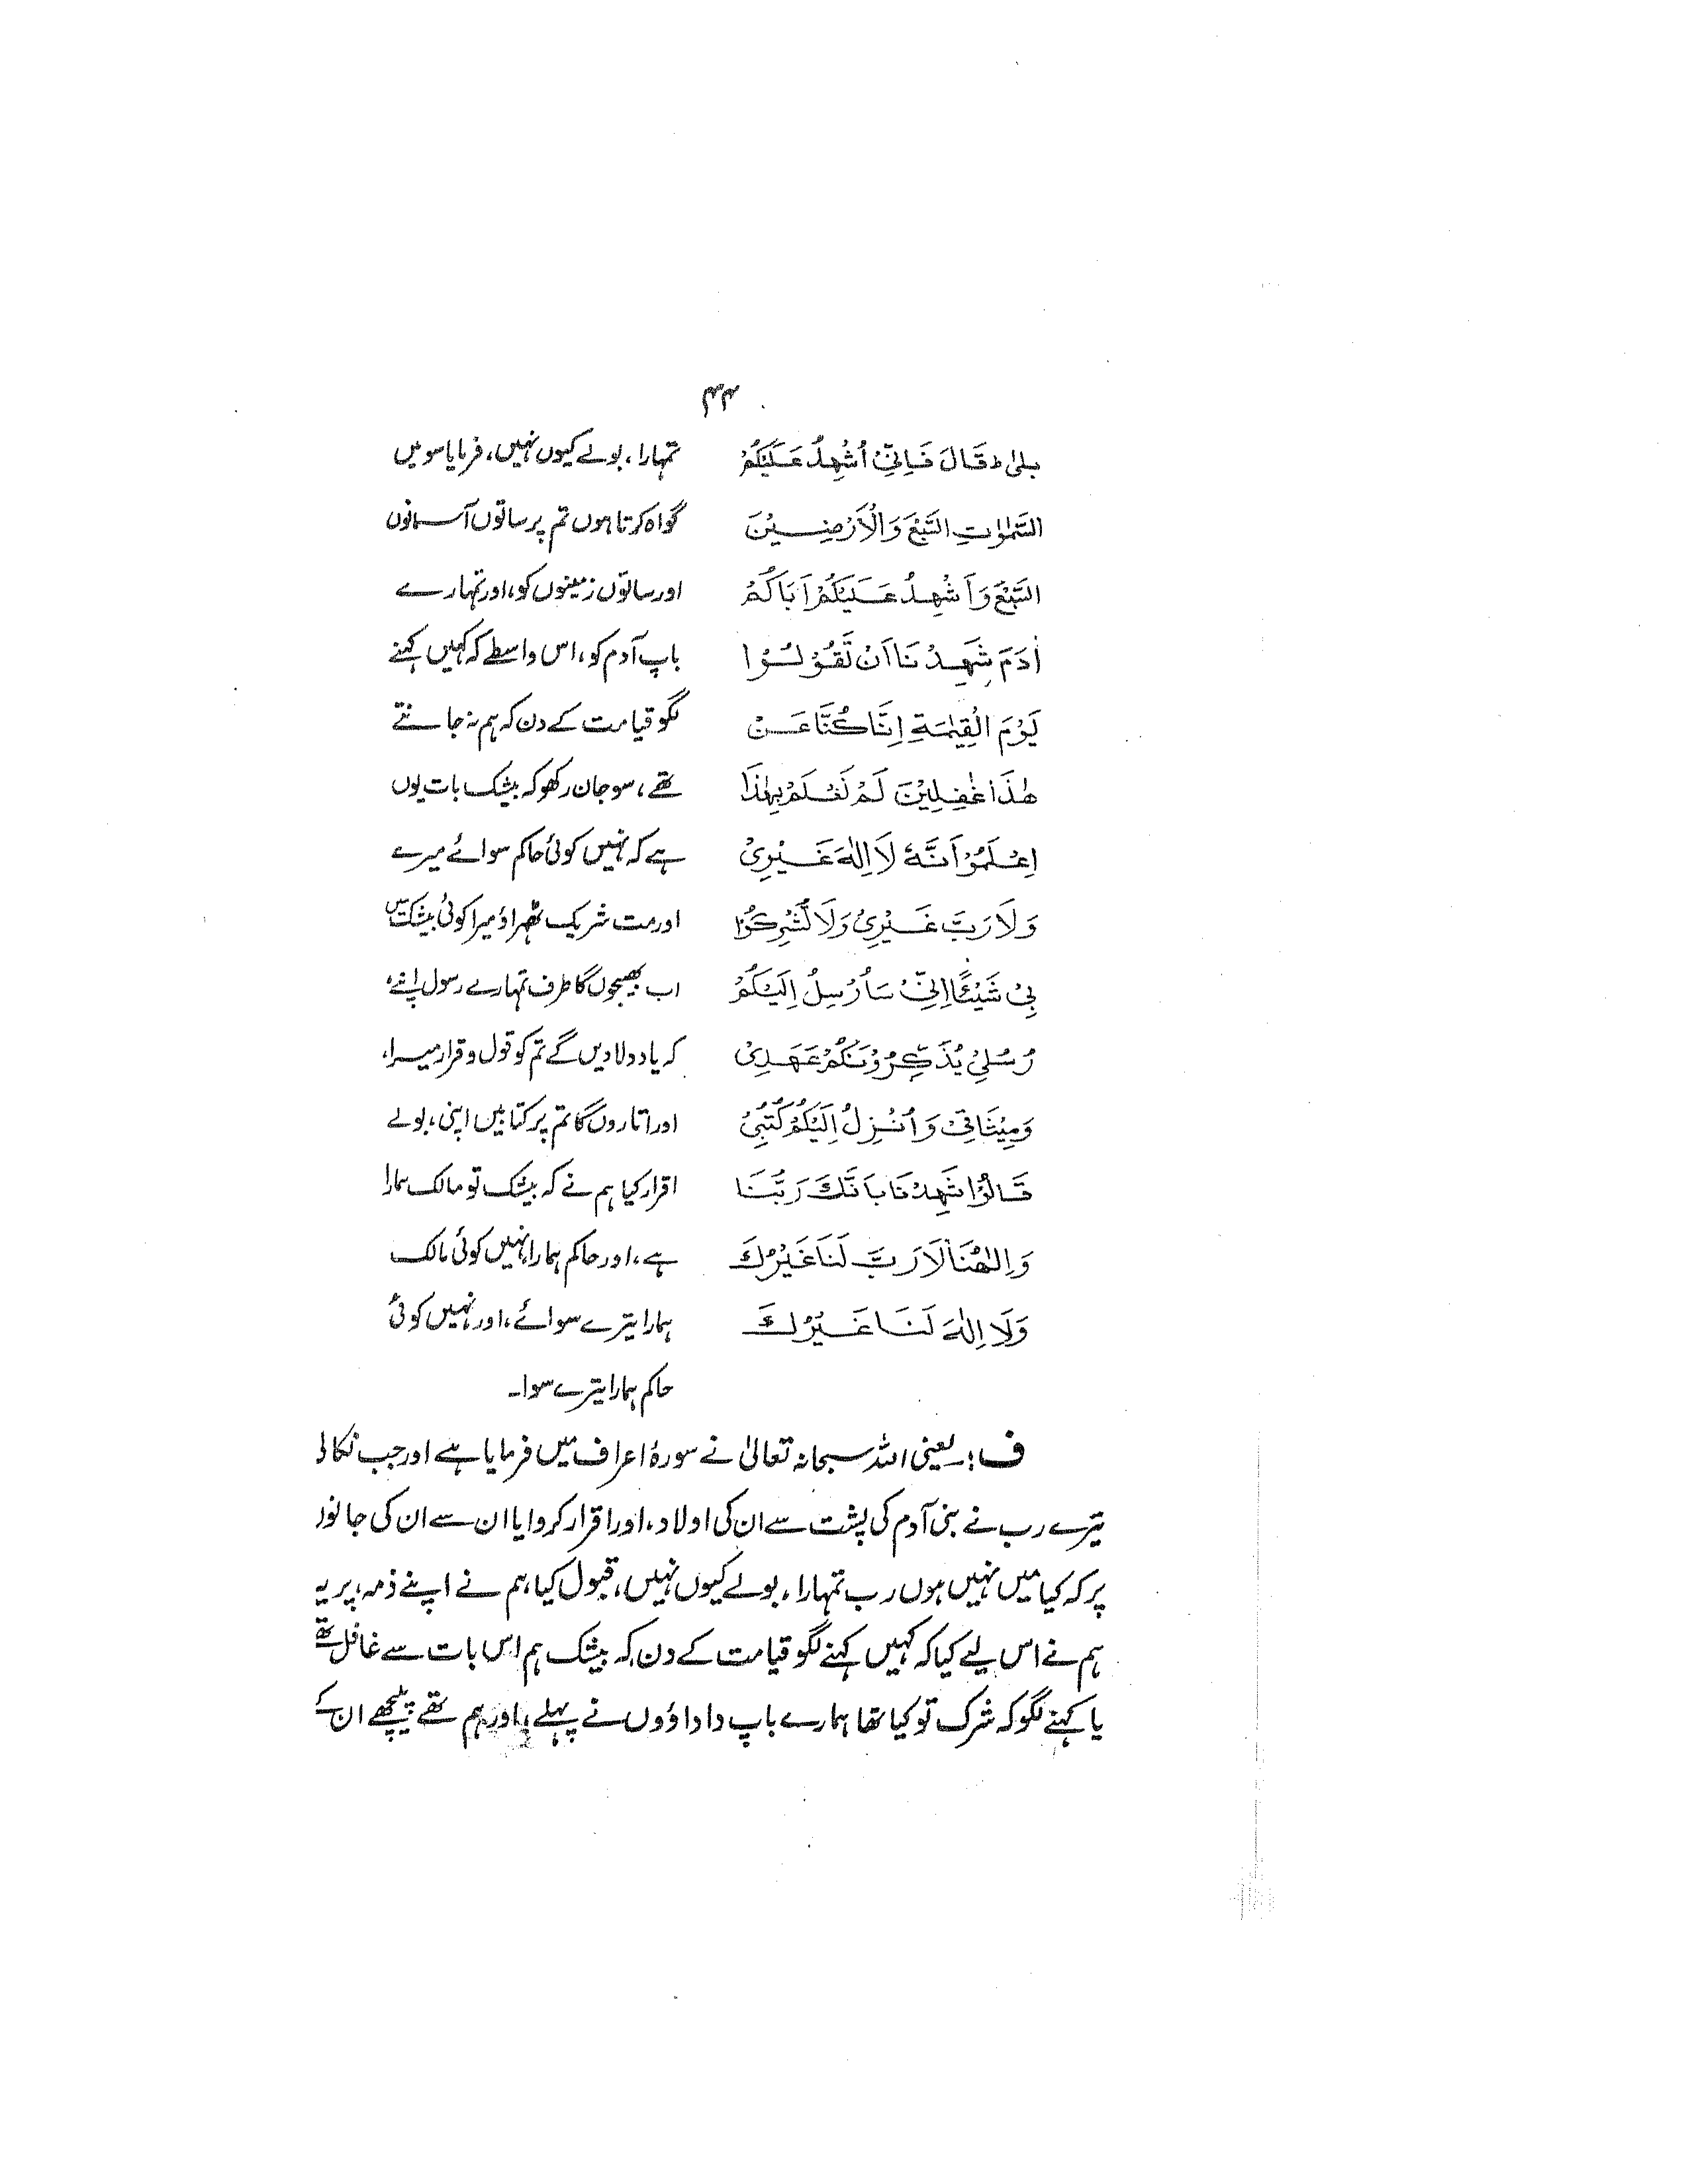 ۴۴
بلىٰ ط قَالَ فَاِنِّیْ اُشْهِدُ عَلَيْكُمُ
السَّمٰوٰتِ السَّبْعَ وَالْاَرْضِيْنَ
السَّبْعَ وَاَشْهِدُ عَلَيْكُمْ اَبَاكُمْ
اٰدَمَ شَهِدْنَا اَنْ تَقُوْلُوْا
يَوْمَ الْقِيٰمَةِ اِنَّا كُنَّا عَنْ
هٰذَا غٰفِلِيْنَ لَمْ نَعْلَمْ بِهٰذَا
اِعْلَمُوْا اَنَّهٗ لَا اِلٰهَ غَيْرِیْ
وَلَا رَبَّ غَيْرِیْ وَلَا تُشْرِكُوْا
بِیْ شَيْئًا اِنِّیْ سَاُرْسِلُ اِلَيْكُمْ
رُسُلِیْ يُذَكِّرُوْنَكُمْ عَهْدِیْ
وَمِيْثَاقِیْ وَاُنْزِلُ اِلَيْكُمْ كُتُبِیْ
قَالُوْا شَهِدْنَا بِاَنَّكَ رَبُّنَا
وَاِلٰهُنَا لَا رَبَّ لَنَا غَيْرُكَ
وَلَا اِلٰهَ لَنَا غَيْرُكَ
تمہارا، بولے کیوں نہیں، فرمایا سو میں
گواہ کرتا ہوں تم پر ساتوں آسمانوں
اور ساتوں زمینوں کو، اور تمہارے
باپ آدم کو، اس واسطے کہ کہیں کہنے
لگو قیامت کے دن کہ ہم نہ جانتے
تھے، سو جان رکھو کہ بیشک بات یوں
ہے کہ نہیں کوئی حاکم سوائے میرے
اور مت شریک ٹھہراؤ میرا کوئی بیشک میں
اب بھیجوں گا طرف تمہارے رسول اپنے،
کہ یاد دلا دیں گے تم کو قول و قرار میرا،
اور اتاروں گا تم پر کتابیں اپنی، بولے
اقرار کیا ہم نے کہ بیشک تو مالک ہمارا
ہے، اور حاکم ہمارا نہیں کوئی مالک
ہمارا تیرے سوائے، اور نہیں کوئی
حاکم ہمارا تیرے سوا۔
ف: یعنی اللہ سبحانہ تعالیٰ نے سورۂ اعراف میں فرمایا ہے اور جب نکالی
تیرے رب نے بنی آدم کی پشت سے ان کی اولاد، اور اقرار کروایا ان سے ان کی جانوں
پر کہ کیا میں نہیں ہوں رب تمہارا، بولے کیوں نہیں، قبول کیا ہم نے اپنے ذمہ پر یہ
ہم نے اس لیے کیا کہ کہیں کہنے لگو قیامت کے دن کہ بیشک ہم اس بات سے غافل تھے
یا کہنے لگو کہ شرک تو کیا تھا ہمارے باپ داداؤوں نے پہلے، اور ہم تھے پیچھے ان کے